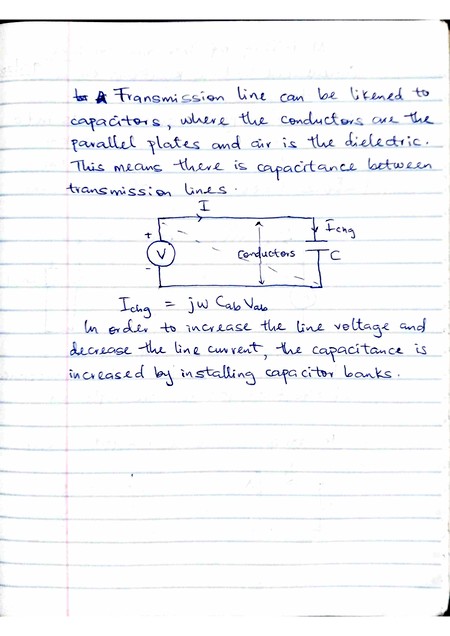 A Transmission line can be likened to
capacitors, where the conductors are the
parallel plates and air is the dielectric.
This means there is capacitance between
transmission lines.
I
+ V -
Conductors
Ichg
C
Ichg = jw Cab Vab
In order to increase the line voltage and
decrease the line current, the capacitance is
increased by installing capacitor banks.